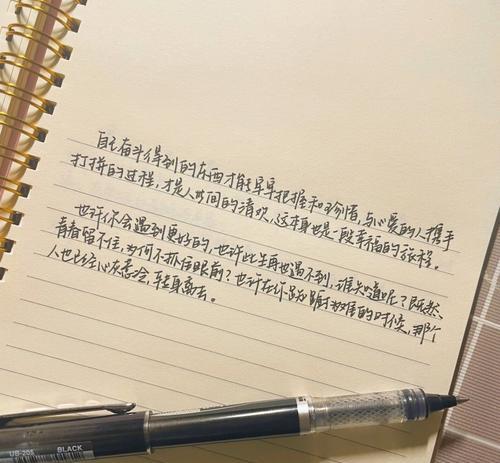 自己奋斗得到的东西才能牢牢把握和珍惜，与心爱的人携手
打拼的过程，才是人时间的清欢，这本身也是一段幸福的旅程。
也许你会遇到更好的，也许此生再也遇不到，谁知道呢？既然
青春留不住，为何不抓住眼前？也许在你踟蹰难的时候，那个
人也已经心灰意冷，轻身离去。
UB-205 BLACK